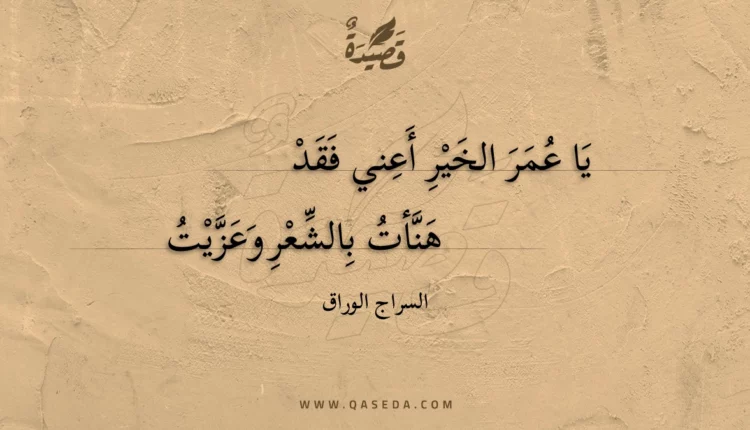 قَصِيْدَةٌ
يَا عُمَرَ الخَيْرِ أَعِني فَقَدْ
هَنَّأتُ بِالشِّعْرِ وَعَزَّيْتُ
السراج الوراق
WWW.QASEDA.COM